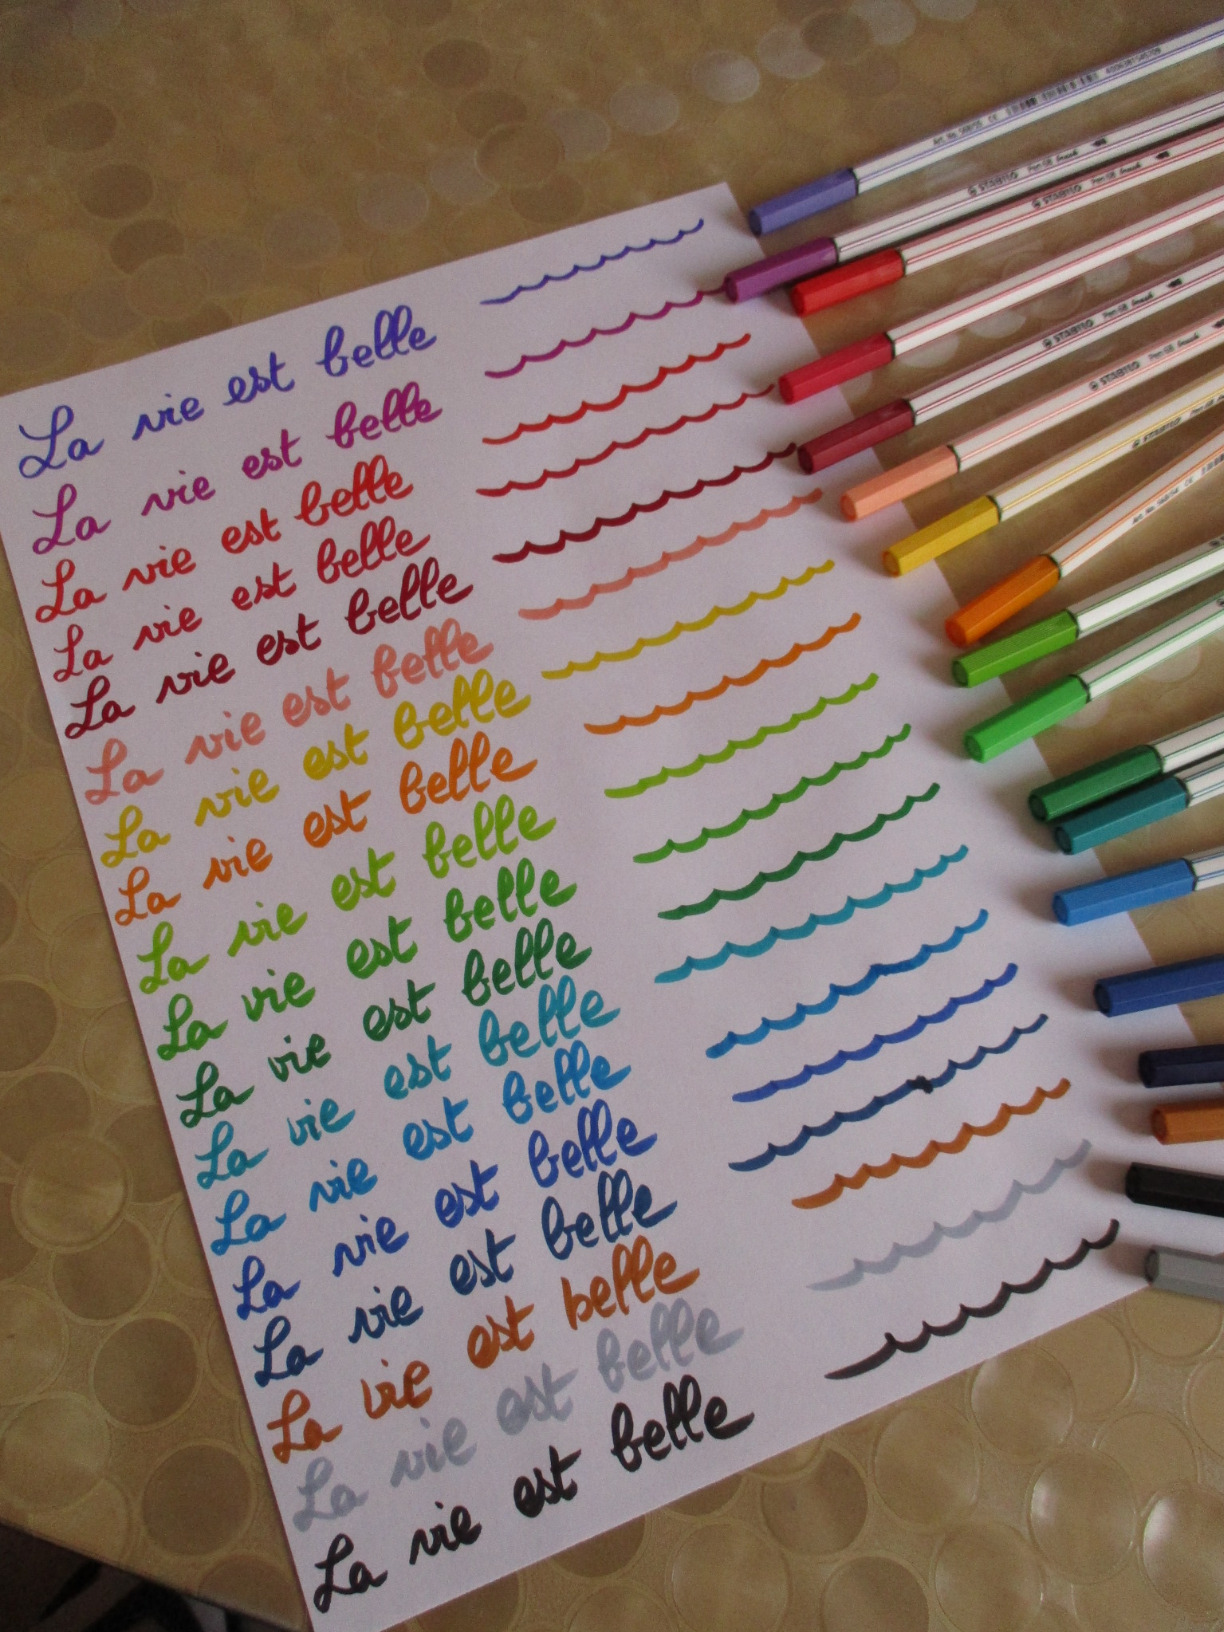 La vie est belle
La vie est belle
La vie est belle
La vie est belle
La vie est belle
La vie est belle
La vie est belle
La vie est belle
La vie est belle
La vie est belle
La vie est belle
La vie est belle
La vie est belle
La vie est belle
La vie est belle
La vie est belle
La vie est belle
La vie est belle
STABILO Pen 68 brush
STABILO Pen 68 brush
STABILO Pen 68 brush
STABILO Pen 68 brush
STABILO